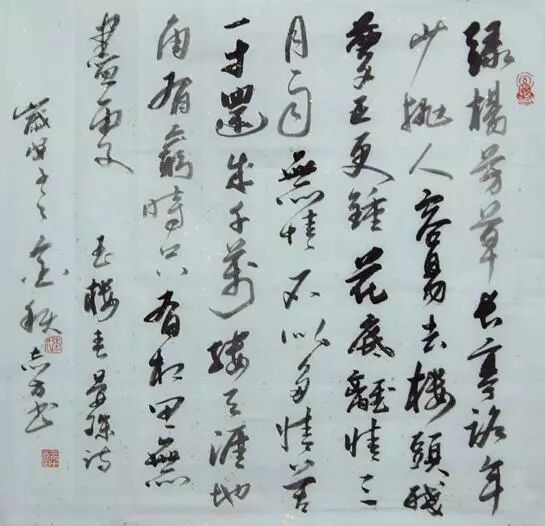 綠楊芳草长亭路年
少拋人容易去樓頭殘
夢五更鍾花底離情三
月雨無情不似多情苦
一寸還成千萬縷天涯地
角有窮時只有相思無
盡處 玉樓春晏殊詩
歲甲午之金秋 書